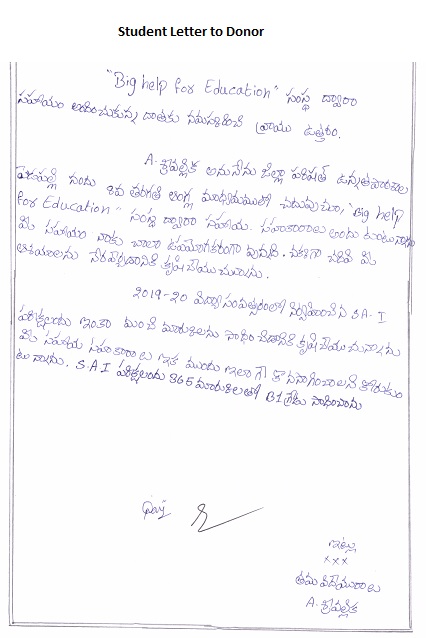 Student Letter to Donor
"Big help for Education" సంస్థ ద్వారా
సహాయం అందించుకున్న దాతకు నమస్కరించి వ్రాయు ఉత్తరం.
A. శ్రీవల్లిక అను నేను జిల్లా పరిషత్ ఉన్నతపాఠశాల
నందు 8వ తరగతి ఆంగ్ల మాధ్యమములో చదువుచూ, "Big help
for Education" సంస్థ ద్వారా సహాయ సహకారాలు అందు కుంటున్నాను
మీ సహాయం నాకు చాలా ఉపయోగకరంగా వున్నది. చక్కగా చదివి మీ
ఆశయాలను నేరవేర్చడానికి కృషి చేయు చున్నాను.
2019-20 విద్యా సంవత్సరంలో నిర్వహించిన SA-I
పరీక్షలందు ఇంకా మంచి మార్కులను సాధించడానికి కృషి చేయుచున్నాను
మీ సహాయ సహకారాలు ఇక ముందు ఇలాగే కొనసాగించాలని కోరుకుం
టున్నాను. S.A I పరీక్షలందు 365 మార్కులతో B1 గ్రేడు సాధించాను
ఇట్లు
xxx
తమ విధేయురాలు
A. శ్రీవల్లిక